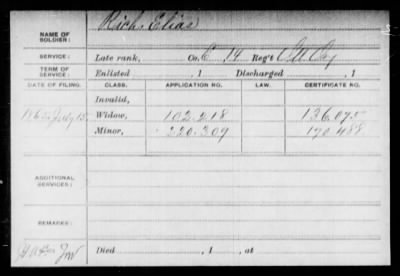 NAME OF SOLDIER: Rich, Elias
SERVICE: Late rank, Co. E 14 Reg't
TERM OF SERVICE: Enlisted , 1 Discharged , 1
DATE OF FILING. CLASS. APPLICATION NO. LAW. CERTIFICATE NO.
Invalid,
July 15 Widow, 102.218 136.075
Minor, 220.309 170.488
ADDITIONAL SERVICES:
REMARKS:
Died , 1 , at